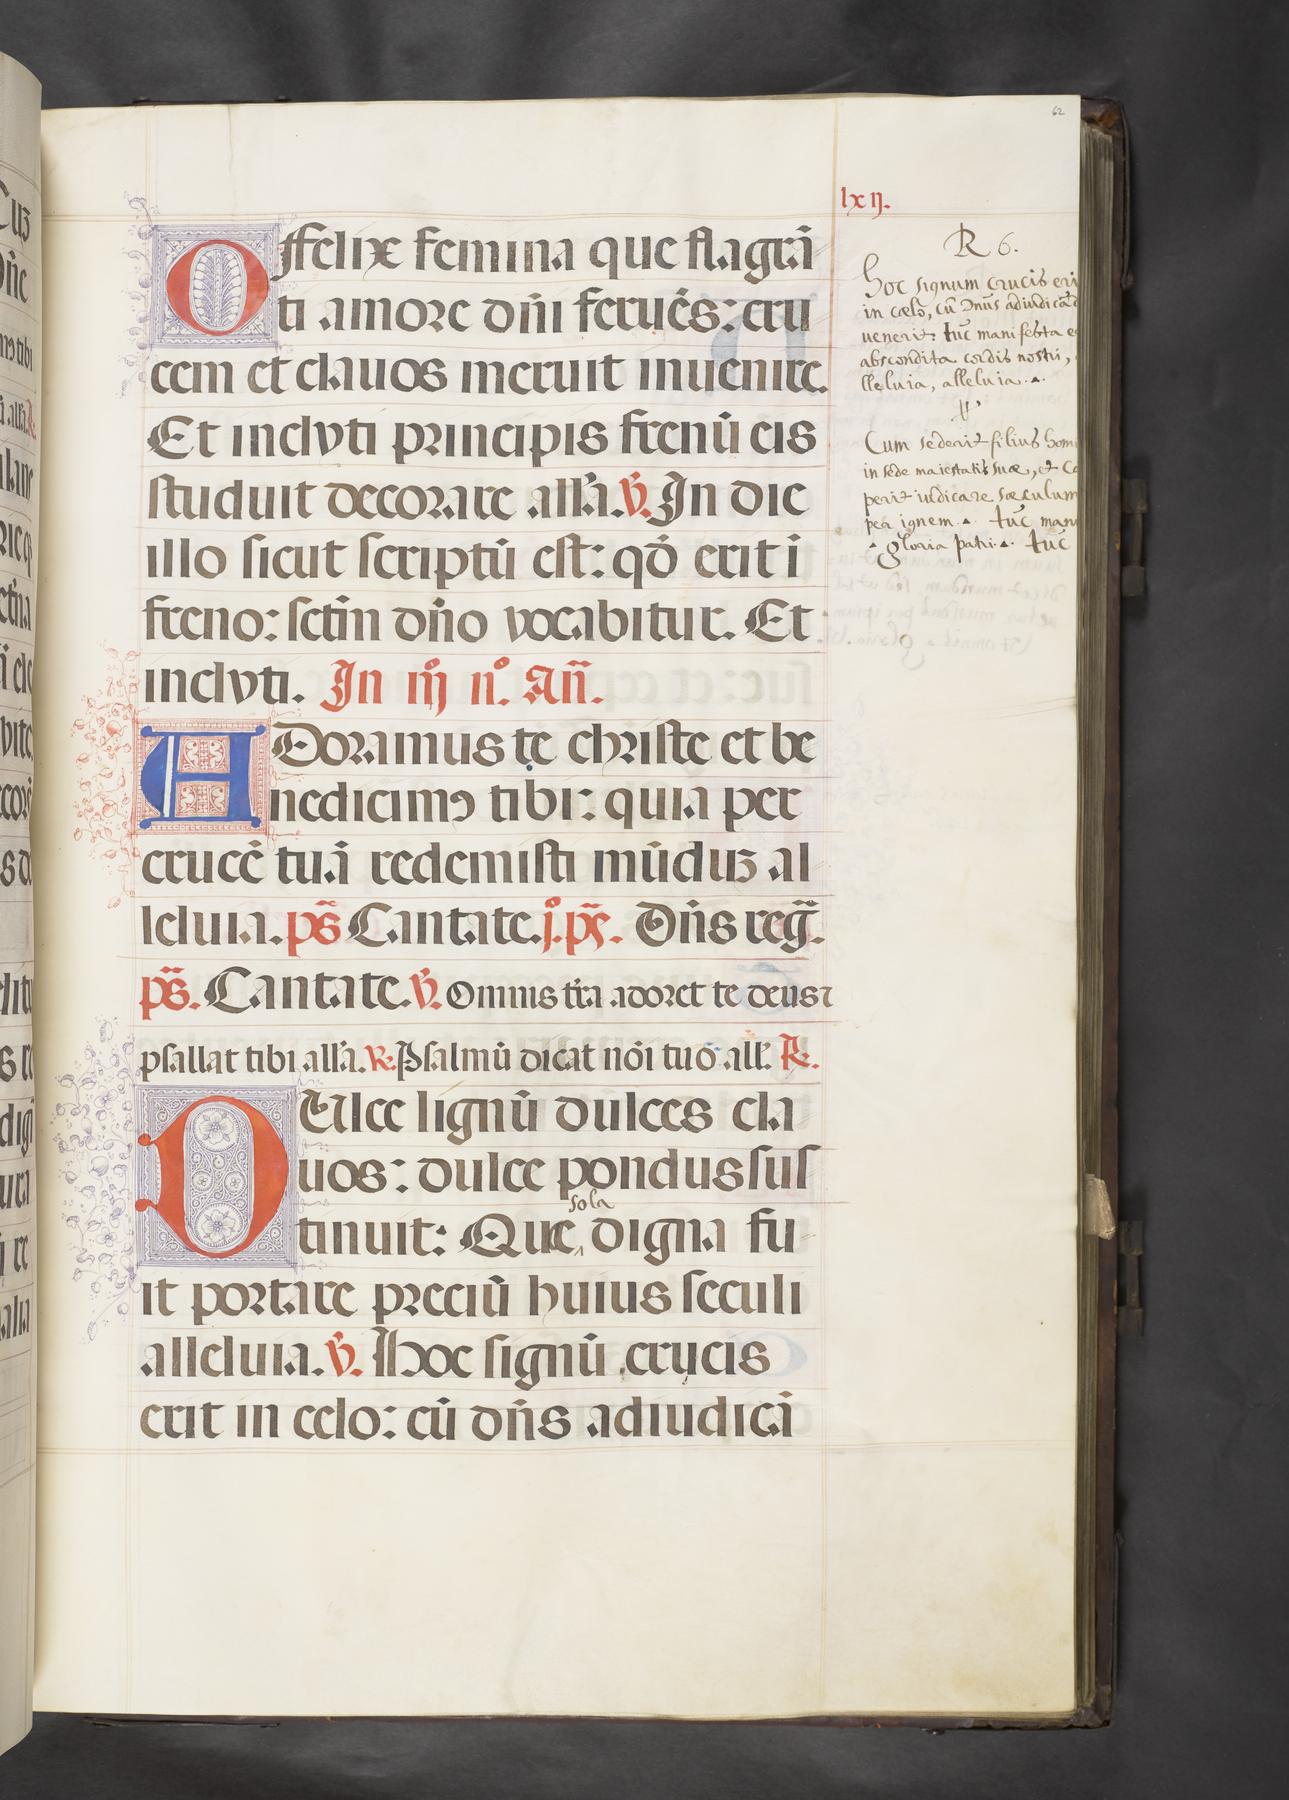 62
lxij.
O Ffelix femina que flagrā
ti amore dn̄i feruēs: cru
cem et clauos meruit inuenire.
Et inclyti principis frenū eis
studuit decorare all'a. V̄. In die
illo sicut scriptū est: qȭ erit ī
freno: sctm̄ dn̄o vocabitur. Et
inclyti. In iij n̊. An̄.
ADoramus te christe et be
nedicimꝰ tibi: quia per
crucē tuā redemisti mūduȝ al
leluia. ps̄ Cantate. j. ps̄. Dn̄s reg̃.
ps̄. Cantate. V̄. Omnis tr̄a adoret te deus ⁊
psallat tibi all'a. R. Psalmū dicat nōi tuo all'. R.
DUlce lignū dulces cla
uos: dulce pondus sus
sola
tinuit: Que digna fu
it portare preciū huius seculi
alleluia. V̄. Hoc signū crucis
erit in celo: cū dn̄s adiudicā
R 6.
hoc signum crucis eri
in cælo, cū Dnus adiudicād
uenerit: tūc manifesta e
abscondita cordis nostri,
lleluia, alleluia.
V
Cum sederit filius homi
in sede maiestatis suæ, et Cæ
perit iudicare sæculum
per ignem. tūc mani
gloria patri. tūc